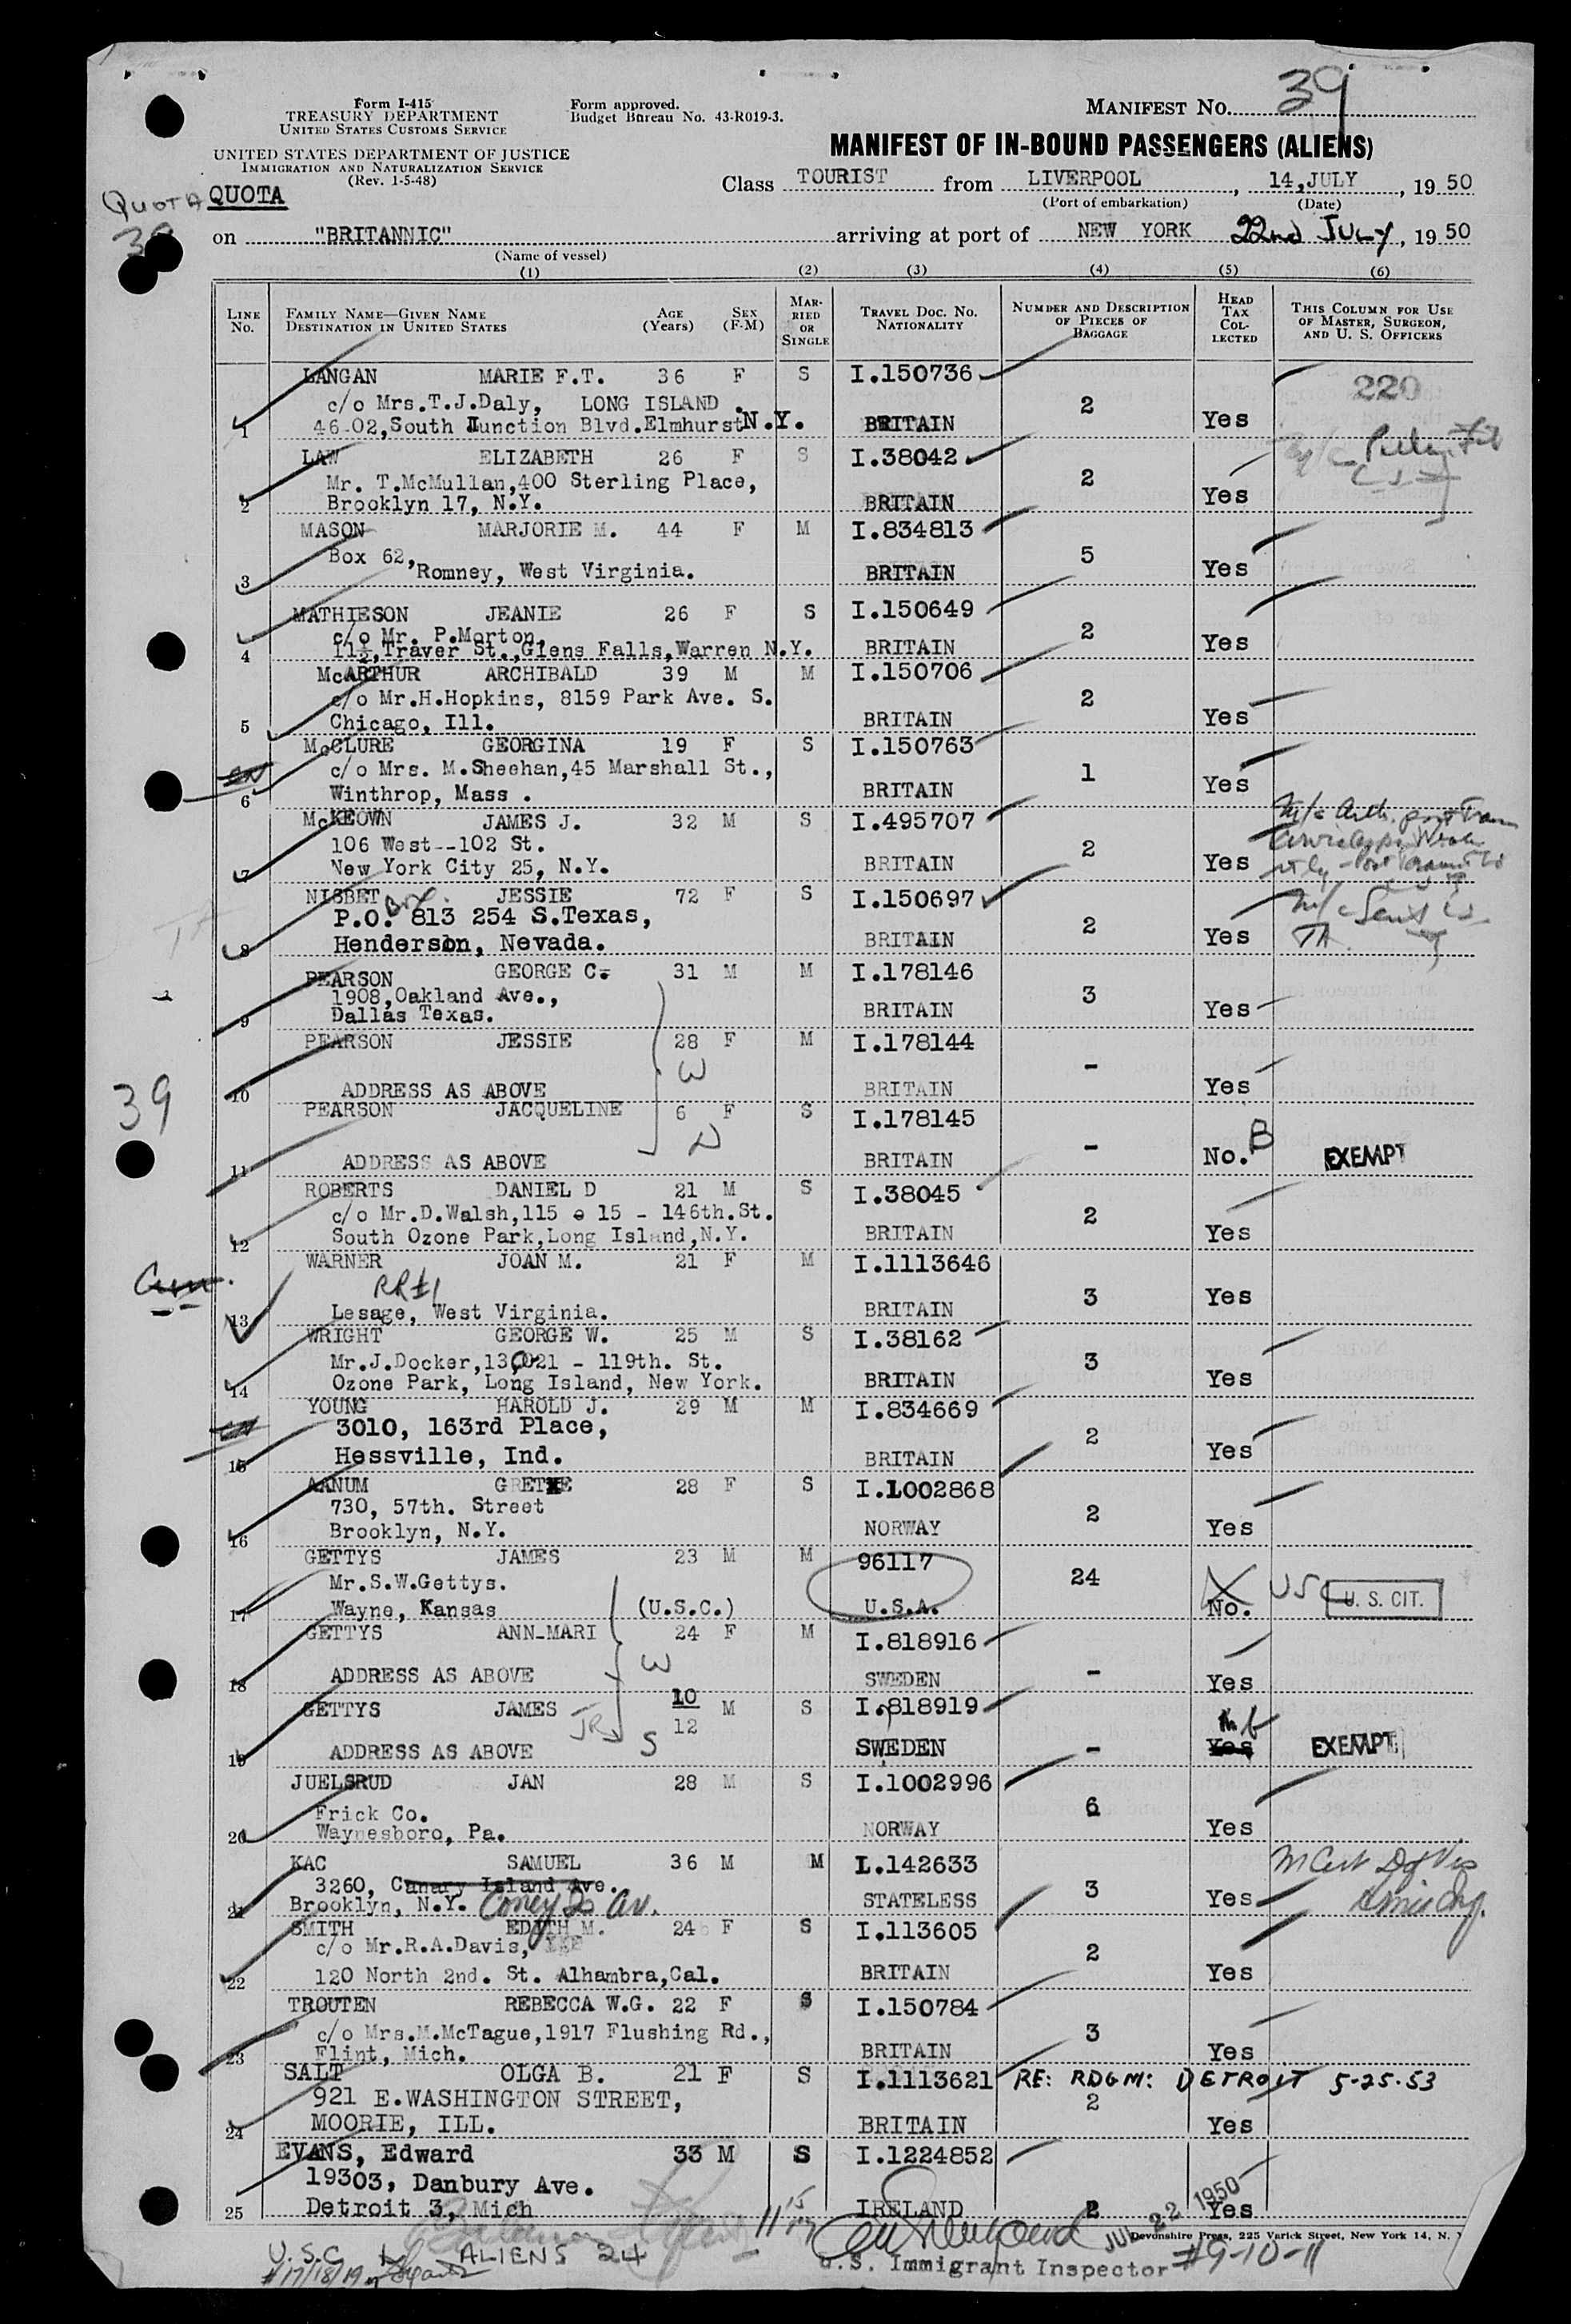 Form I-415
TREASURY DEPARTMENT
UNITED STATES CUSTOMS SERVICE
Form approved.
Budget Bureau No. 43-R019-3.
MANIFEST NO. 39
UNITED STATES DEPARTMENT OF JUSTICE
IMMIGRATION AND NATURALIZATION SERVICE
(Rev. 1-5-48)
MANIFEST OF IN-BOUND PASSENGERS (ALIENS)
QUOTA QUOTA
39
Class TOURIST from LIVERPOOL, 14,JULY, 19 50
(Port of embarkation) (Date)
on "BRITANNIC" arriving at port of NEW YORK 22nd JULY, 19 50
(Name of vessel)
(1) (2) (3) (4) (5) (6)
LINE No. FAMILY NAME—GIVEN NAME DESTINATION IN UNITED STATES AGE (Years) SEX (F-M) MARRIED OR SINGLE TRAVEL DOC. NO. NATIONALITY NUMBER AND DESCRIPTION OF PIECES OF BAGGAGE HEAD TAX COLLECTED THIS COLUMN FOR USE OF MASTER, SURGEON, AND U. S. OFFICERS
LANGAN MARIE F.T. 36 F S I.150736 220
c/o Mrs.T.J.Daly, LONG ISLAND. 2
1 46-02,South Junction Blvd.Elmhurst N.Y. BRITAIN Yes
LAW ELIZABETH 26 F S I.38042
Mr. T.McMullan,400 Sterling Place, 2
2 Brooklyn 17, N.Y. BRITAIN Yes
MASON MARJORIE M. 44 F M I.834813
Box 62, 5
3 Romney, West Virginia. BRITAIN Yes
MATHIESON JEANIE 26 F S I.150649
c/o Mr. P.Morton, 2
4 11½,Traver St.,Glens Falls,Warren N.Y. BRITAIN Yes
McARTHUR ARCHIBALD 39 M M I.150706
c/o Mr.H.Hopkins, 8159 Park Ave. S. 2
5 Chicago, Ill. BRITAIN Yes
McCLURE GEORGINA 19 F S I.150763
c/o Mrs. M.Sheehan,45 Marshall St., 1
6 Winthrop, Mass. BRITAIN Yes
McKEOWN JAMES J. 32 M S I.495707
106 West--102 St. 2
7 New York City 25, N.Y. BRITAIN Yes
NISBET JESSIE 72 F S I.150697
P.O. Box 813 254 S.Texas, 2
8 Henderson, Nevada. BRITAIN Yes
PEARSON GEORGE C. 31 M M I.178146
1908,Oakland Ave., 3
9 Dallas Texas. BRITAIN Yes
PEARSON JESSIE 28 F M I.178144
W -
10 ADDRESS AS ABOVE BRITAIN Yes
39
PEARSON JACQUELINE 6 F S I.178145
D - B
11 ADDRESS AS ABOVE BRITAIN No. EXEMPT
ROBERTS DANIEL D 21 M S I.38045
c/o Mr.D.Walsh,115 - 15 - 146th.St. 2
12 South Ozone Park,Long Island,N.Y. BRITAIN Yes
WARNER JOAN M. 21 F M I.1113646
RR#1 3 Yes
13 Lesage, West Virginia. BRITAIN
WRIGHT GEORGE W. 25 M S I.38162
Mr.J.Docker,130-21 - 119th. St. 3
14 Ozone Park, Long Island, New York. BRITAIN Yes
YOUNG HAROLD J. 29 M M I.834669
3010, 163rd Place, 2
15 Hessville, Ind. BRITAIN Yes
AANUM GRETE 28 F S I.1002868
730, 57th. Street 2
16 Brooklyn, N.Y. NORWAY Yes
GETTYS JAMES 23 M M 96117
Mr.S.W.Gettys. 24 USC U. S. CIT.
17 Wayne, Kansas (U.S.C.) U.S.A. No.
GETTYS ANN-MARI 24 F M I.818916
W -
18 ADDRESS AS ABOVE SWEDEN Yes
GETTYS JAMES JR 10/12 M S I.818919
S -
19 ADDRESS AS ABOVE SWEDEN Yes EXEMPT
JUELSRUD JAN 28 M S I.1002996
Frick Co. 6
20 Waynesboro, Pa. NORWAY Yes
KAC SAMUEL 36 M M I.142633
3260, Canary Island Ave. 3
21 Brooklyn, N.Y. Coney Is Av. STATELESS Yes
SMITH EDYTH M. 24 F S I.113605
c/o Mr.R.A.Davis, 2
22 120 North 2nd. St. Alhambra,Cal. BRITAIN Yes
TROUTEN REBECCA W.G. 22 F S I.150784
c/o Mrs.M.McTague,1917 Flushing Rd., 3
23 Flint, Mich. BRITAIN Yes
SALT OLGA B. 21 F S I.1113621 RE: RDGM: DETROIT 5-25-53
921 E.WASHINGTON STREET, 2
24 MOORIE, ILL. BRITAIN Yes
EVANS, Edward 33 M S I.1224852
19303, Danbury Ave.
25 Detroit 3, Mich IRELAND 2 Yes
JUL 22 1950
Devonshire Press, 225 Varick Street, New York 14, N.
U.S.C 1 ALIENS 24
#17/18/19
U.S. Immigrant Inspector #9-10-11